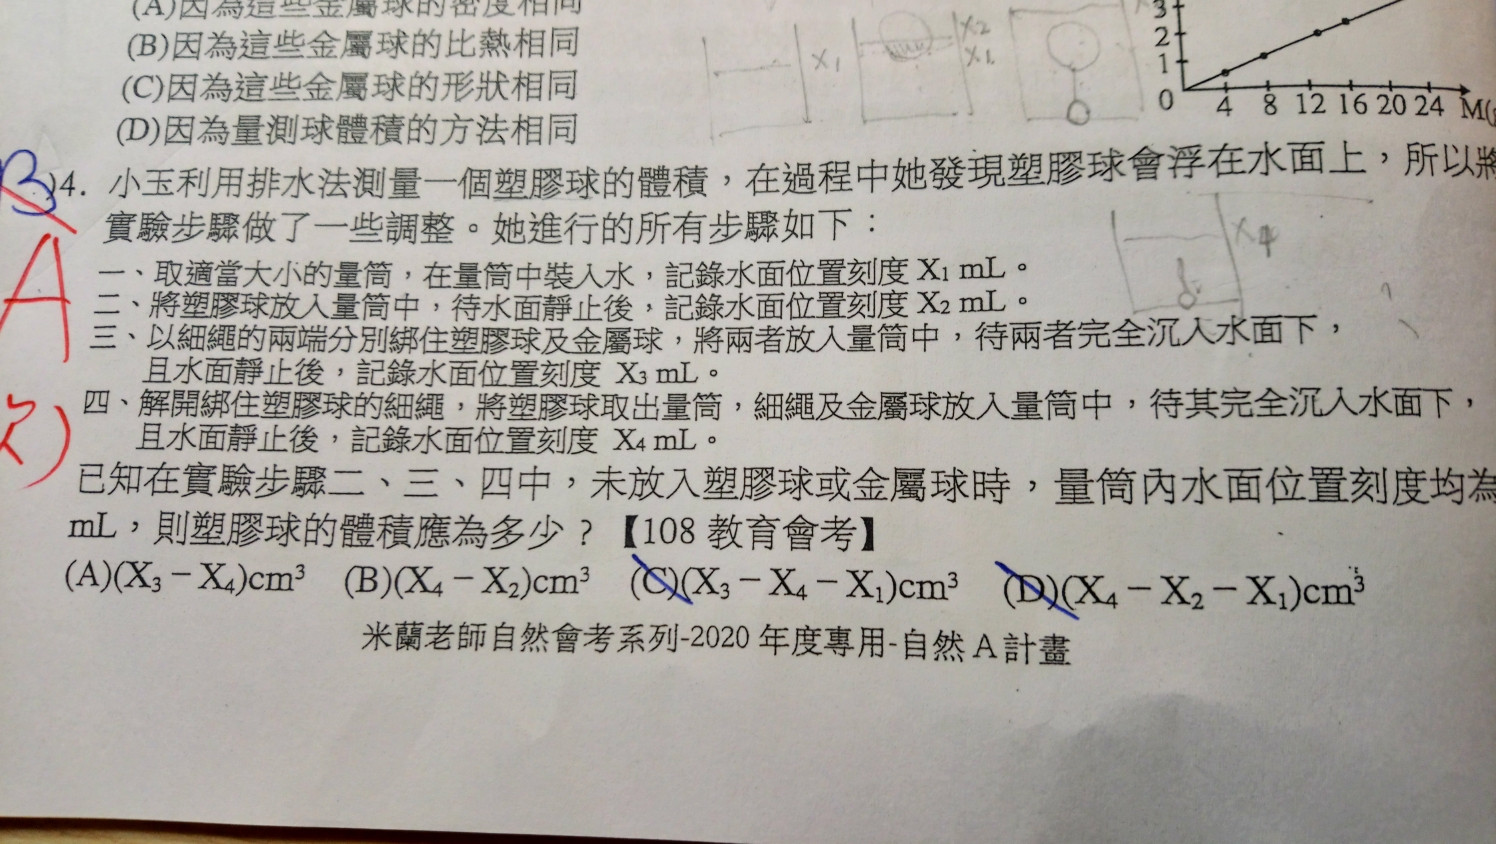 (A)因為這些金屬球的密度相同
(B)因為這些金屬球的比熱相同
(C)因為這些金屬球的形狀相同
(D)因為量測球體積的方法相同
X₁
X₂
X₁
3
2
1
0 4 8 12 16 20 24 M(
B
)4. 小玉利用排水法測量一個塑膠球的體積，在過程中她發現塑膠球會浮在水面上，所以將
實驗步驟做了一些調整。她進行的所有步驟如下：
X₄
A
一、取適當大小的量筒，在量筒中裝入水，記錄水面位置刻度 X₁ mL。
二、將塑膠球放入量筒中，待水面靜止後，記錄水面位置刻度 X₂ mL。
三、以細繩的兩端分別綁住塑膠球及金屬球，將兩者放入量筒中，待兩者完全沉入水面下，
且水面靜止後，記錄水面位置刻度 X₃ mL。
四、解開綁住塑膠球的細繩，將塑膠球取出量筒，細繩及金屬球放入量筒中，待其完全沉入水面下，
且水面靜止後，記錄水面位置刻度 X₄ mL。
已知在實驗步驟二、三、四中，未放入塑膠球或金屬球時，量筒內水面位置刻度均為
mL，則塑膠球的體積應為多少？【108 教育會考】
(A)(X₃－X₄)cm³ (B)(X₄－X₂)cm³ (C)(X₃－X₄－X₁)cm³ (D)(X₄－X₂－X₁)cm³
米蘭老師自然會考系列-2020 年度專用-自然 A 計畫